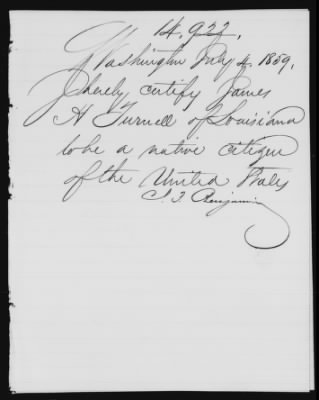 14,922,
Washington July 4, 1859,
I hereby certify James
H Turnell of Louisiana
to be a native citizen
of the United States
Benjamin